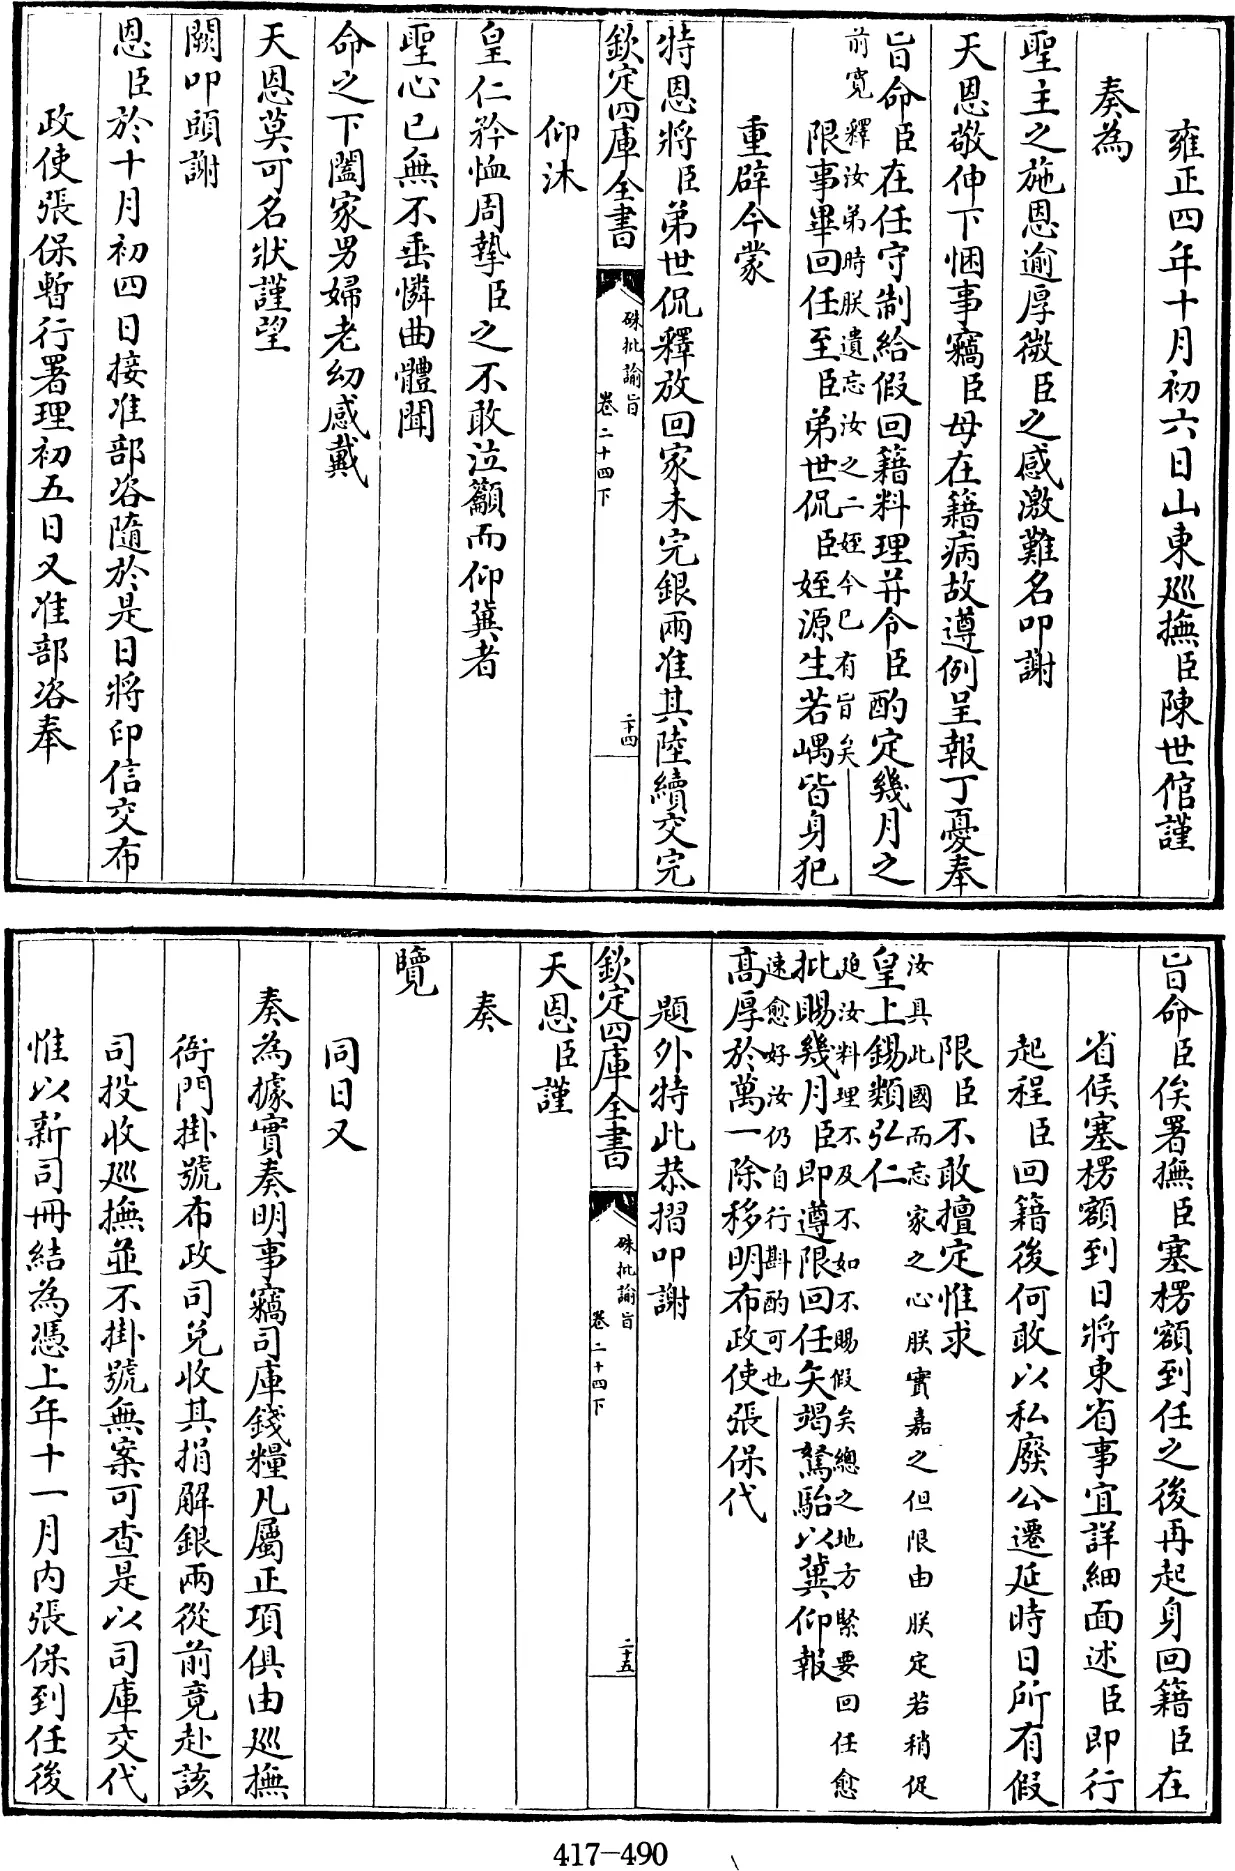 雍正四年十月初六日山東巡撫臣陳世倌謹
奏為
聖主之施恩逾厚微臣之感激難名叩謝
天恩敬伸下悃事竊臣母在籍病故遵例呈報丁憂奉
旨命臣在任守制給假回籍料理并令臣酌定幾月之
前寬釋汝弟時朕遺忘汝之二姪今已有旨矣
限事畢回任至臣弟世侃臣姪源生若嵎皆身犯
重辟今蒙
特恩將臣弟世侃釋放回家未完銀兩准其陸續交完
欽定四庫全書
硃批諭旨
卷二十四下
二十四
仰沐
皇仁矜恤周摯臣之不敢泣籲而仰冀者
聖心已無不垂憐曲體聞
命之下闔家男婦老幼感戴
天恩莫可名狀謹望
闕叩頭謝
恩臣於十月初四日接准部咨隨於是日將印信交布
政使張保暫行署理初五日又准部咨奉
旨命臣俟署撫臣塞楞額到任之後再起身回籍臣在
省候塞楞額到日將東省事宜詳細面述臣即行
起程臣回籍後何敢以私廢公遷延時日所有假
限臣不敢擅定惟求
汝具此國而忘家之心朕實嘉之但限由朕定若稍促
皇上錫類弘仁
迫汝料理不及不如不賜假矣總之地方緊要回任愈
批賜幾月臣即遵限回任矢竭駑駘以冀仰報
速愈好汝仍自行斟酌可也
高厚於萬一除移明布政使張保代
題外特此恭摺叩謝
欽定四庫全書
硃批諭旨
卷二十四下
二十五
天恩臣謹
奏
覽
同日又
奏為據實奏明事竊司庫錢糧凡屬正項俱由巡撫
衙門掛號布政司兌收其捐解銀兩從前竟赴該
司投收巡撫並不掛號無案可查是以司庫交代
惟以新司冊結為憑上年十一月內張保到任後
417-490